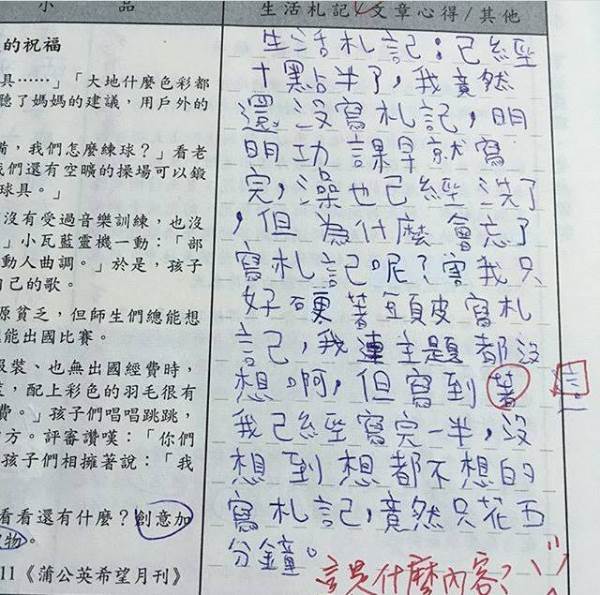 小 品
的祝福
具……」「大地什麼色彩都
聽了媽媽的建議,用戶外的
備,我們怎麼練球?」看老
我們還有空曠的操場可以鍛
球具。」
沒有受過音樂訓練,也沒
」小瓦藍靈機一動:「部
動人曲調。」於是,孩子
自己的歌。
源貧乏,但師生們總能想
能出國比賽。
服裝、也無出國經費時,
,配上彩色的羽毛很有
費。」孩子們唱唱跳跳,
方。評審讚嘆:「你們
孩子們相擁著說:「我
看看還有什麼?創意加
物。
11《蒲公英希望月刊》
生活札記/文章心得/其他
生活札記:已經
十點半了,我竟然
還沒寫札記,明
明功課早就寫
完,澡也已經洗了
,但為什麼會忘了
寫札記呢?害我只
好硬著頭皮寫札
記,我連主題都沒
想啊,但寫到著
我已經寫完一半,沒
想到想都不想的
寫札記,竟然只花五
分鐘。
這是什麼內容?